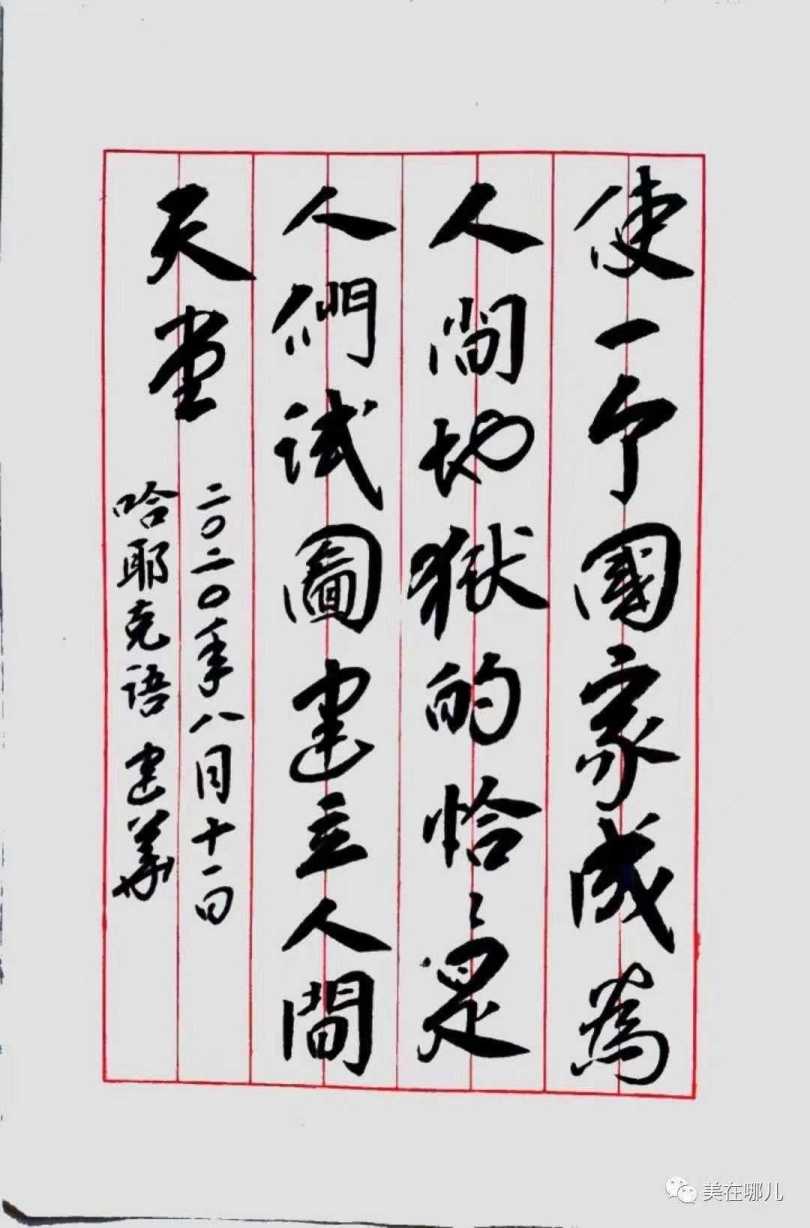 使一个國家成為
人間地獄的恰〻是
人們试圖建立人間
天堂
二〇二〇年八月十一日
哈耶克语 建華
美在哪儿